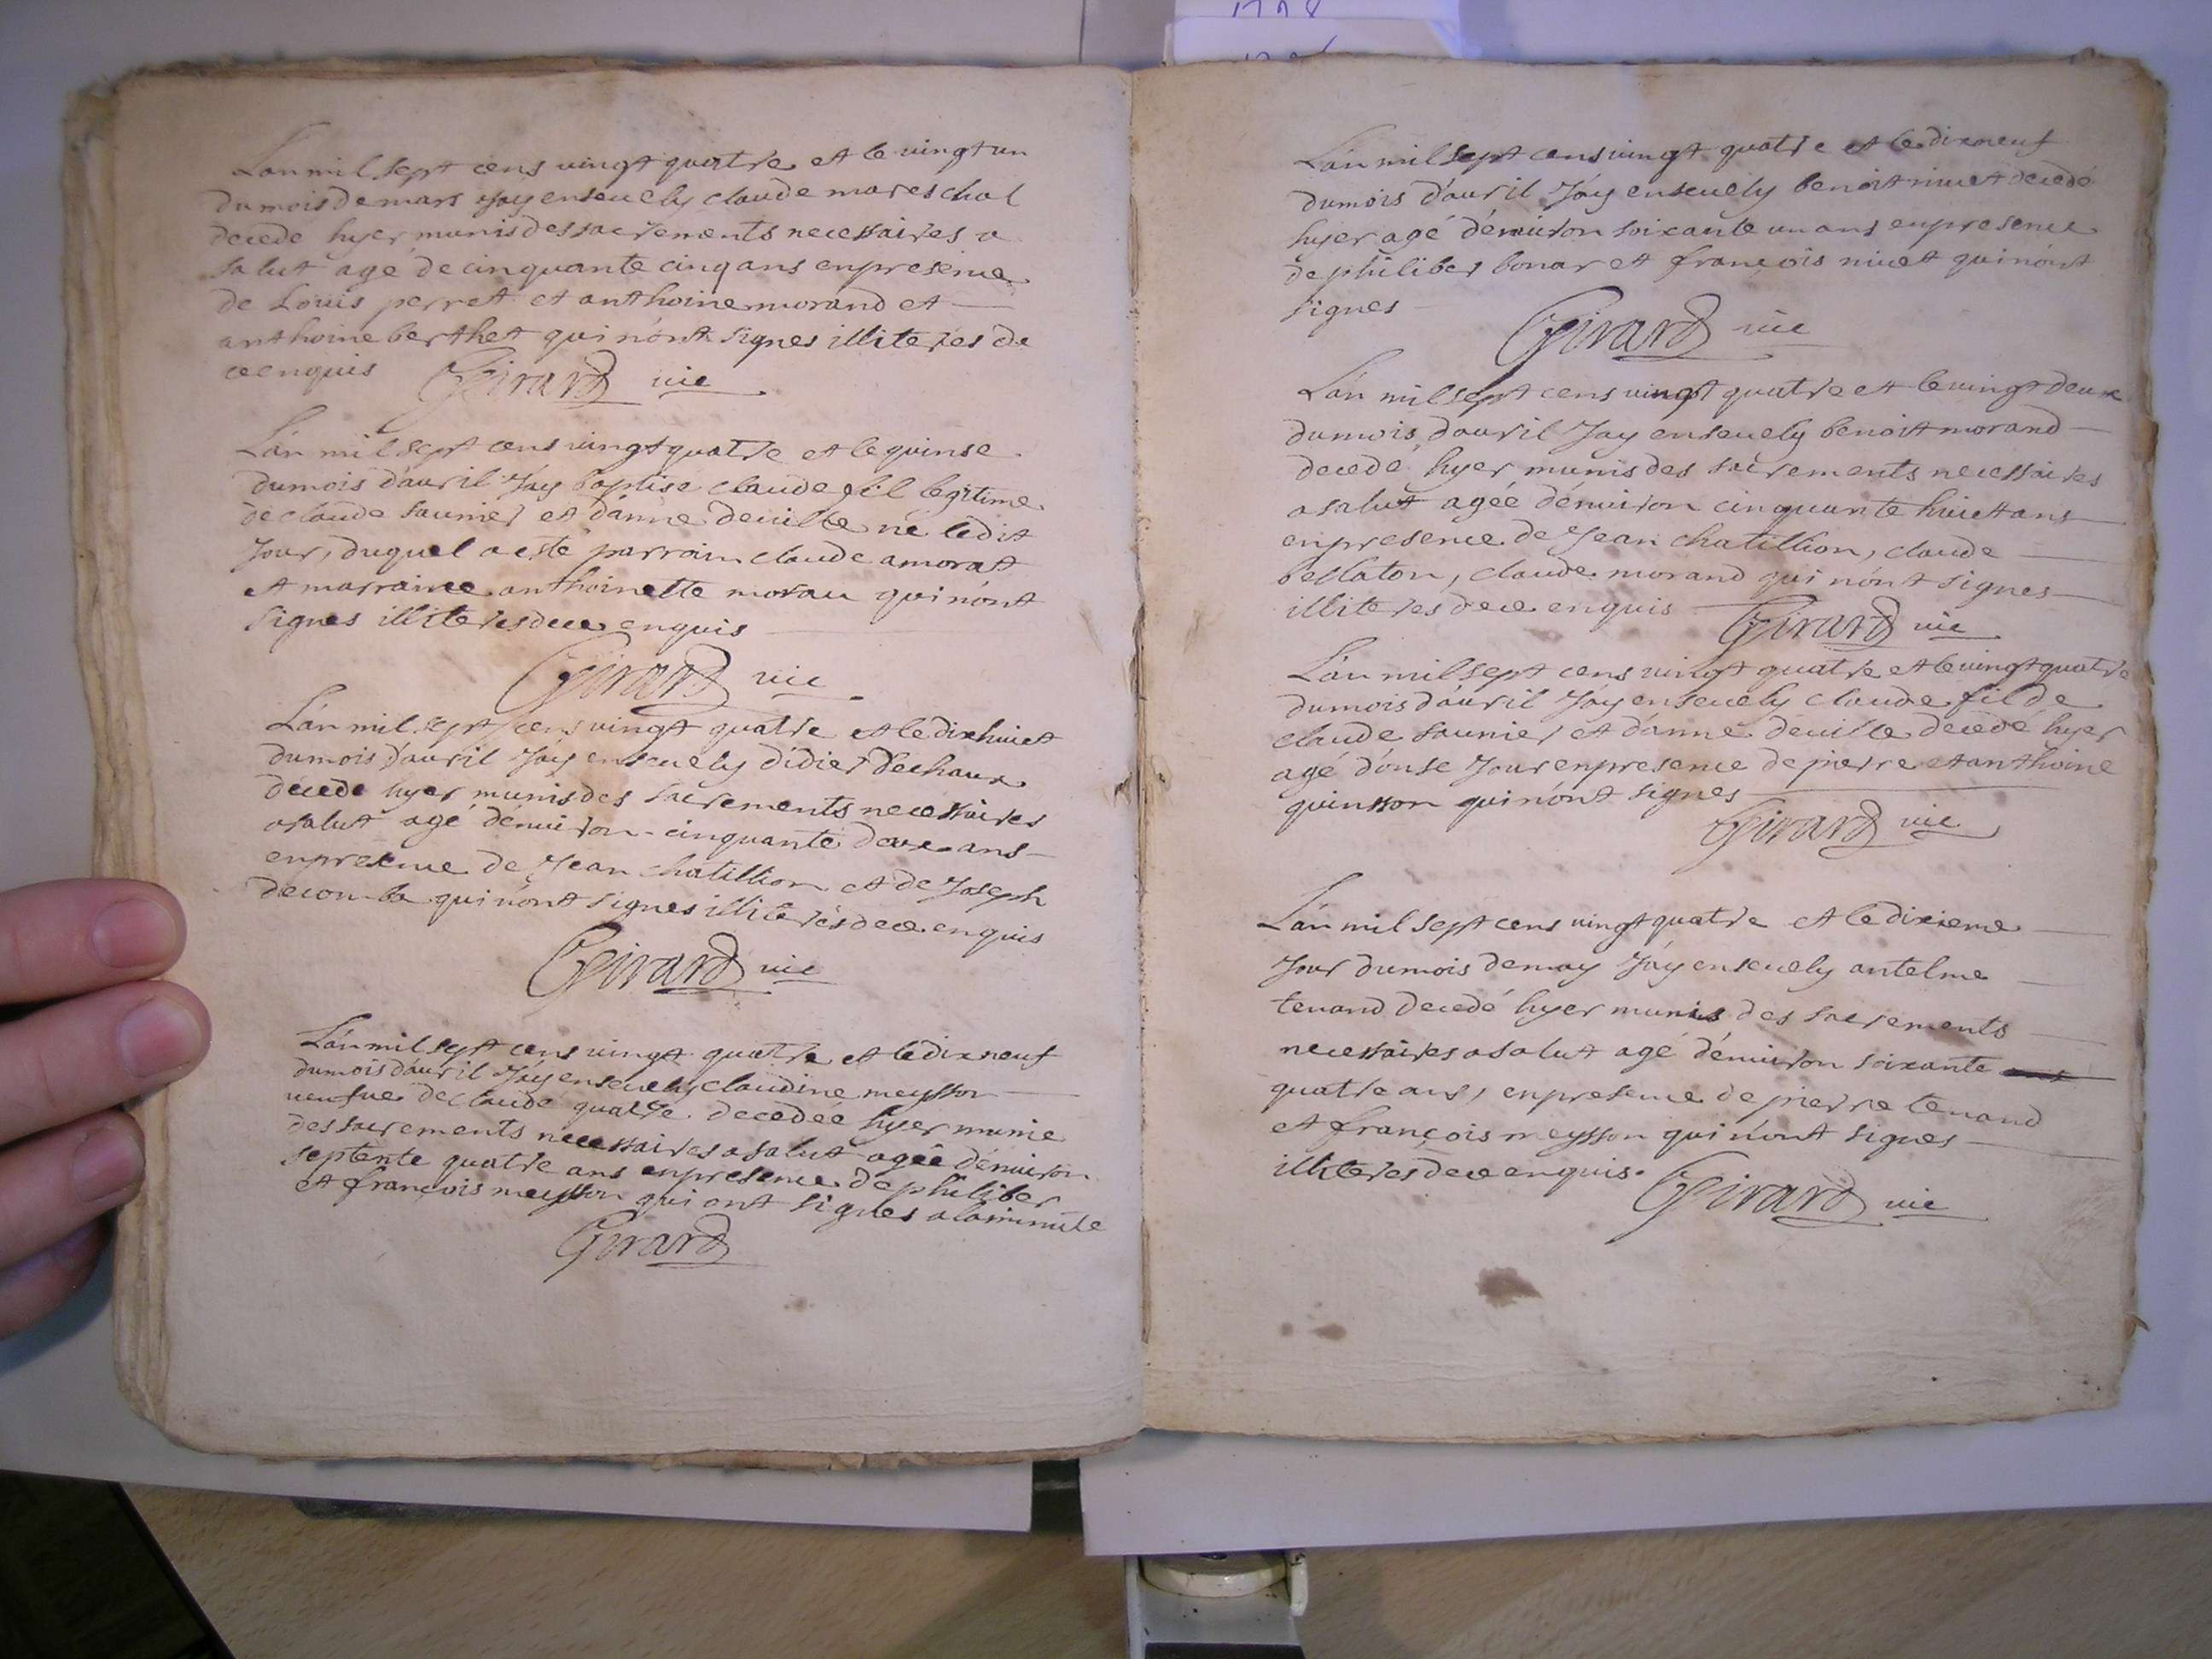 Lan mil sept cens vingt quatre et le vingt un
du mois de mars Jay enseuely claude mareschal
decede hyer munis des sacrements necessaires a
salut agé de cinquante cinq ans en presence
de Louis perret et anthoine morand et
anthoine berthet qui n'ont signes illiterés de
ce enquis Girard vic
L'an mil sept cens vingt quatre et le quinse
du mois d'auril J'ay baptise claude fil legitime
de claude saunier et d'anne deville né ledit
Jour, duquel a esté parrain claude amorat
et marraine anthoinette morau qui n'ont
signes illiteres de ce enquis
Girard vic
L'an mil sept cens vingt quatre et le dixhuict
du mois d'auril J'ay enseuely didier Dechaux
décedé hyer munis des sacrements necessaires
a salut agé d'enuiron cinquante deux ans
en presence de Jean chatillion et de Joseph
decombe qui n'ont signes illiterés de ce enquis
Girard vic
L'an mil sept cens vingt quatre et le dix neuf
du mois d'auril J'ay enseuely claudine meysson
veufue de claude quatre decedée hyer munie
des sacrements necessaires a salut agée d'enuiron
septente quatre ans en presence de philiber
et françois meysson qui ont signes a la minute
Girard
L'an mil sept cens vingt quatre et le dix neuf
du mois d'auril J'ay enseuely benoit niuet decedé
hyer agé d'enuiron soixante un ans en presence
de philiber bonar et françois niuet qui n'ont
signes
Girard vic
L'an mil sept cens vingt quatre et le vingt deux
du mois d'auril Jay enseuely benoit morand
decedé hyer munis des sacrements necessaires
a salut agée d'enuiron cinquante huict ans
en presence de Jean chatillion, claude
bellaton, claude morand qui n'ont signes
illiteres de ce enquis Girard vic
L'an mil sept cens vingt quatre et le vingt quatre
du mois d'auril J'ay enseuely claude fil de
claude saunier et d'anne deuille decedé hyer
agé d'onse Jour en presence de pierre et anthoine
quinsson qui n'ont signes
Girard vic
L'an mil sept cens vingt quatre et le dixieme
Jour du mois de may J'ay enseuely antelme
tenand decedé hyer munis des sacrements
necessaires a salut agé d'enuiron soixante
quatre ans, en presence de pierre tenand
et françois meysson qui n'ont signes
illiteres de ce enquis. Girard vic